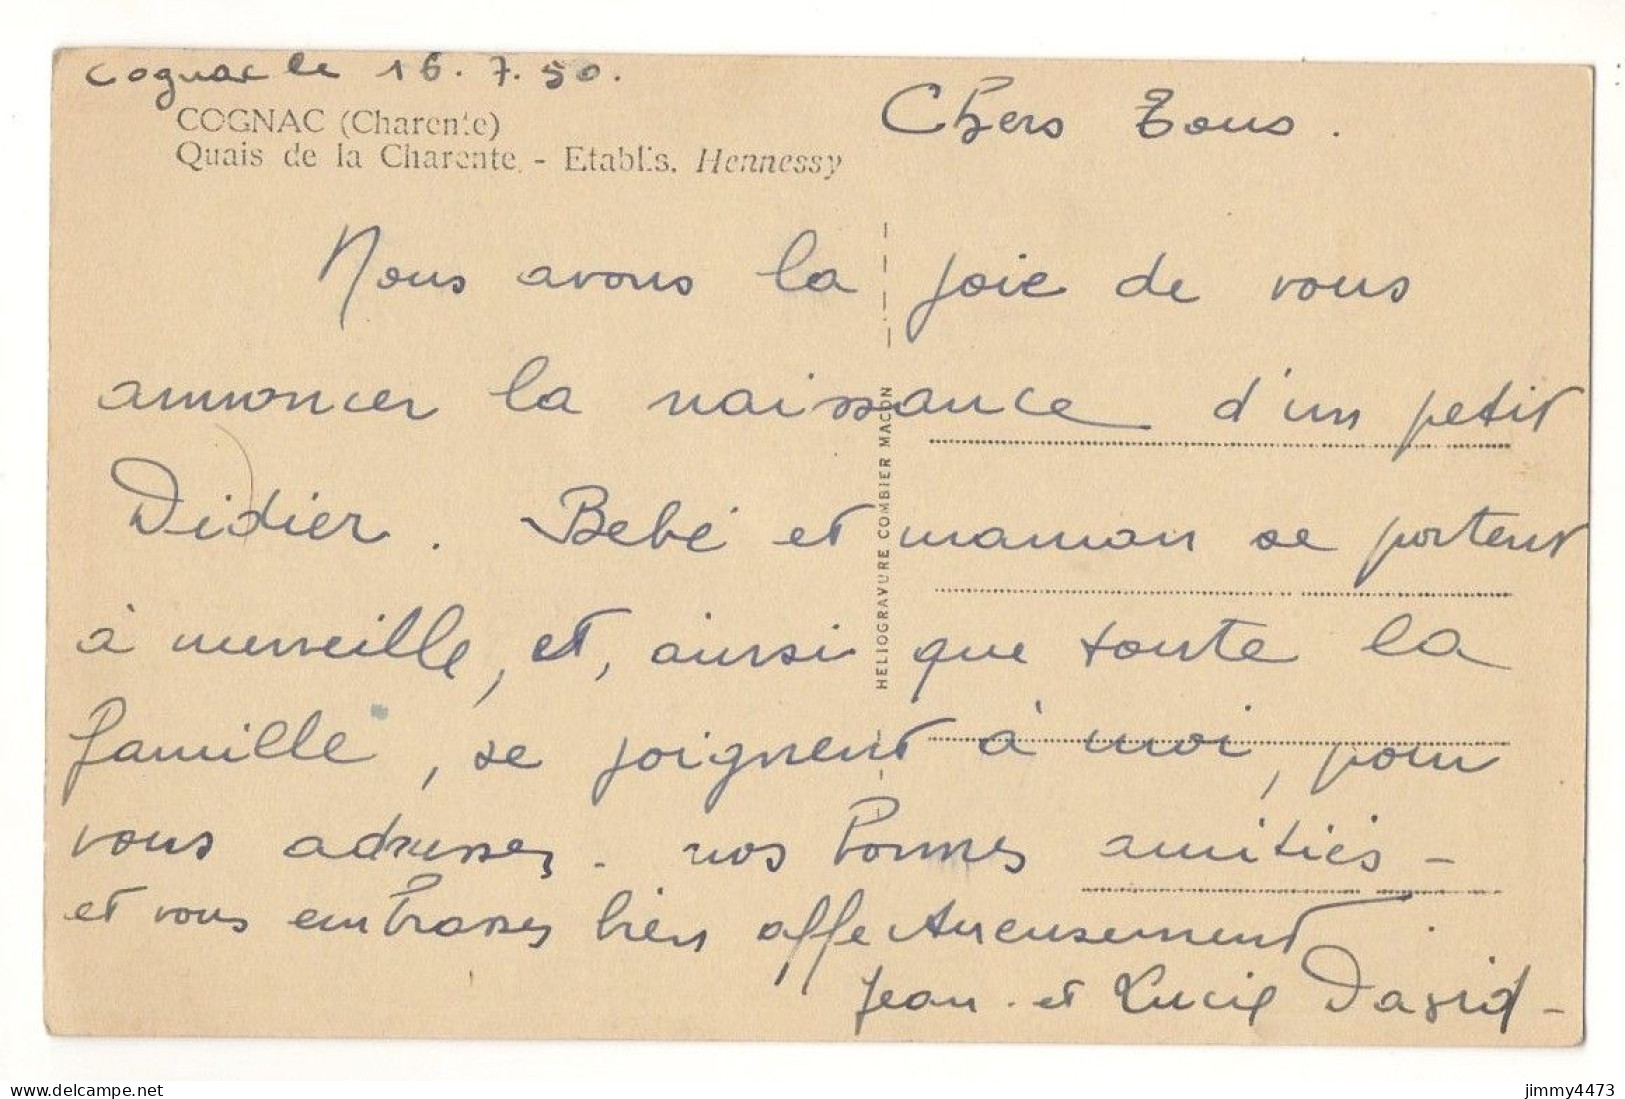 Cognac le 16.7.50.
COGNAC (Charente)
Quais de la Charente. - Etablis. Hennessy
Chers Tous.
Nous avons la joie de vous
annoncer la naissance d'un petit
Didier. Bébé et maman se portent
à merveille, et, ainsi que toute la
famille, se joignent à moi, pour
vous adresser. nos bonnes amitiés -
et vous embrasser bien affectueusement.
Jean. et Lucie David -
HELIOGRAVURE COMBIER MACON
www.delcampe.net
jimmy4473